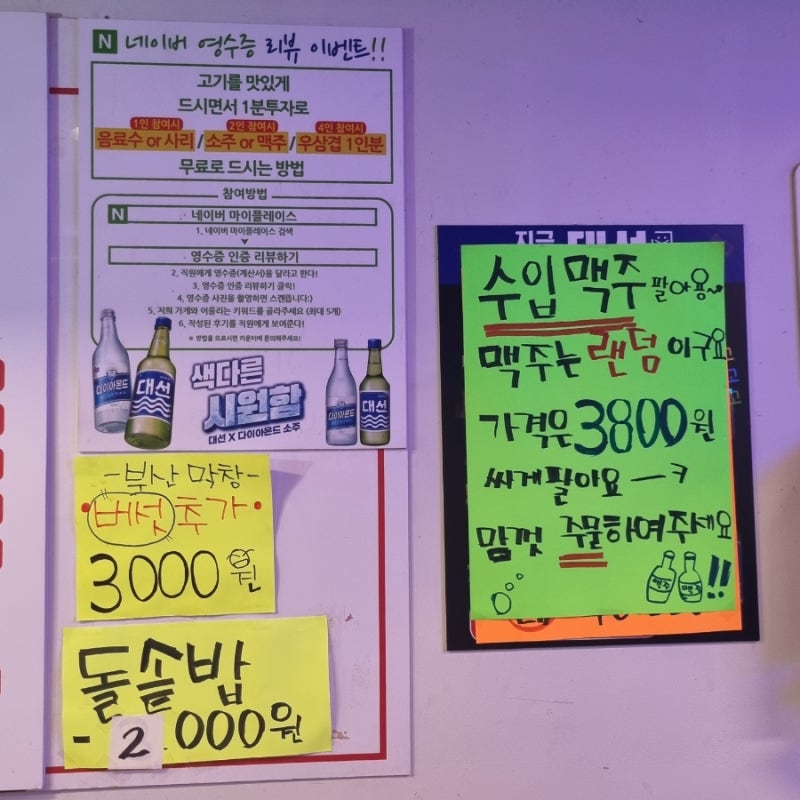 N 네이버 영수증 리뷰 이벤트!!
고기를 맛있게
드시면서 1분투자로
1인 참여시 2인 참여시 4인 참여시
음료수 or 사리 / 소주 or 맥주 / 우삼겹 1인분
무료로 드시는 방법
참여방법
N 네이버 마이플레이스
1. 네이버 마이플레이스 검색
영수증 인증 리뷰하기
2. 직원에게 영수증(계산서)을 달라고 한다!
3. 영수증 인증 리뷰하기 클릭!
4. 영수증 사진을 촬영하면 스캔뜹니다:)
5. 저희 가게와 어울리는 키워드를 골라주세요 (최대 5개)
6. 작성된 후기를 직원에게 보여준다!
* 방법을 모르시면 카운터에 문의해주세요!
다이아몬드
대선
색다른
시원함
대선 X 다이아몬드 소주
다이아몬드
대선
-부산 막창-
버섯 추가
3000원
돌솥밥
- 2000원
지금 대선
수입 맥주 팔아용~
맥주는 랜덤이구요
가격은 3800원
싸게 팔아요 ㅡㅋ
맘껏 주문하여주세요
맥주 맥주 !!